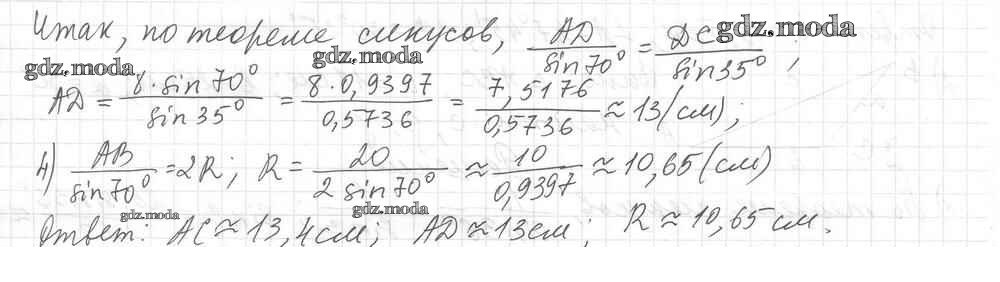 Итак, по теореме синусов, AD/sin70° = DC/sin35°;
gdz.moda
gdz.moda
gdz.moda
AD = 8·sin70°/sin35° = 8·0,9397/0,5736 = 7,5176/0,5736 ≈ 13(см);
4) AB/sin70° = 2R; R = 20/2 sin70° ≈ 10/0,9397 ≈ 10,65(см)
gdz.moda
gdz.moda
Ответ: AC ≈ 13,4см; AD ≈ 13см; R ≈ 10,65см.